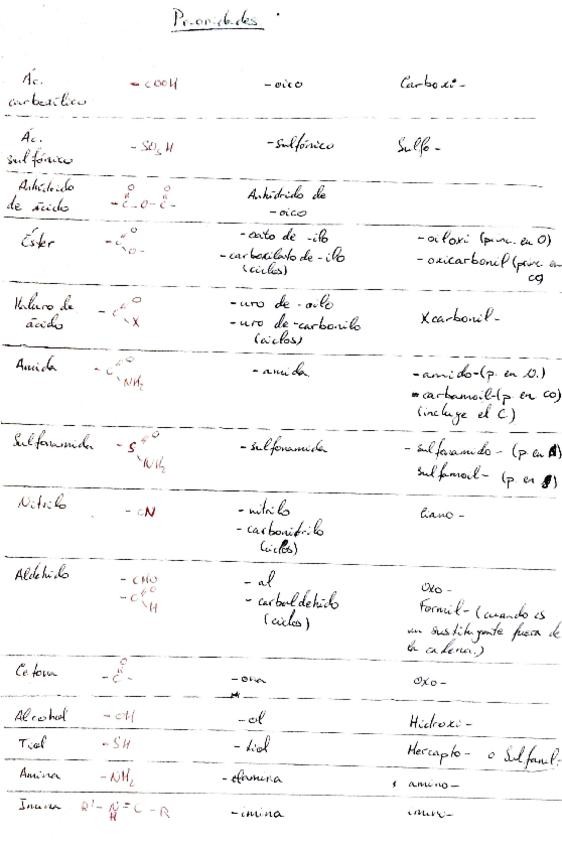 Prioridades
Ác. carboxílico - COOH -oico Carboxi-
Ác. sulfónico - SO3H -sulfónico Sulfo-
Anhídrido de ácido O O -C-O-C- Anhídrido de -oico
Éster -C O O- -oato de -ilo -oiloxi (princ. en O)
-carboxilato de -ilo (ciclos) -oxicarbonil (princ. en CO)
Haluro de ácido -C O X -uro de -oilo Xcarbonil-
-uro de -carbonilo (ciclos)
Amida -C O NH2 -amida -amido-(p. en N.)
-carbamoil-(p. en CO)
(incluye el C.)
Sulfonamida -S O NH2 -sulfonamida -sulfonamido- (p. en
sulfamoil- (p. en
Nitrilo - CN -nitrilo Ciano-
-carbonitrilo (ciclos)
Aldehído - CHO -al Oxo-
-C O H -carbaldehído (ciclos) Formil- (cuando es
un sustituyente fuera de
la cadena.)
Cetona O -C- -ona Oxo-
Alcohol -OH -ol Hidroxi-
Tiol -SH -tiol Mercapto- o Sulfanil-
Amina -NH2 amino-
Imina R'-N=C-R H -imina imino-